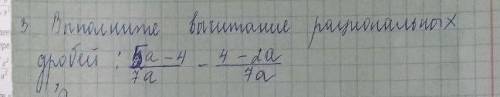 3. Выполните вычитание рациональных
дробей: (5a-4)/(7a) - (4-2a)/(7a)